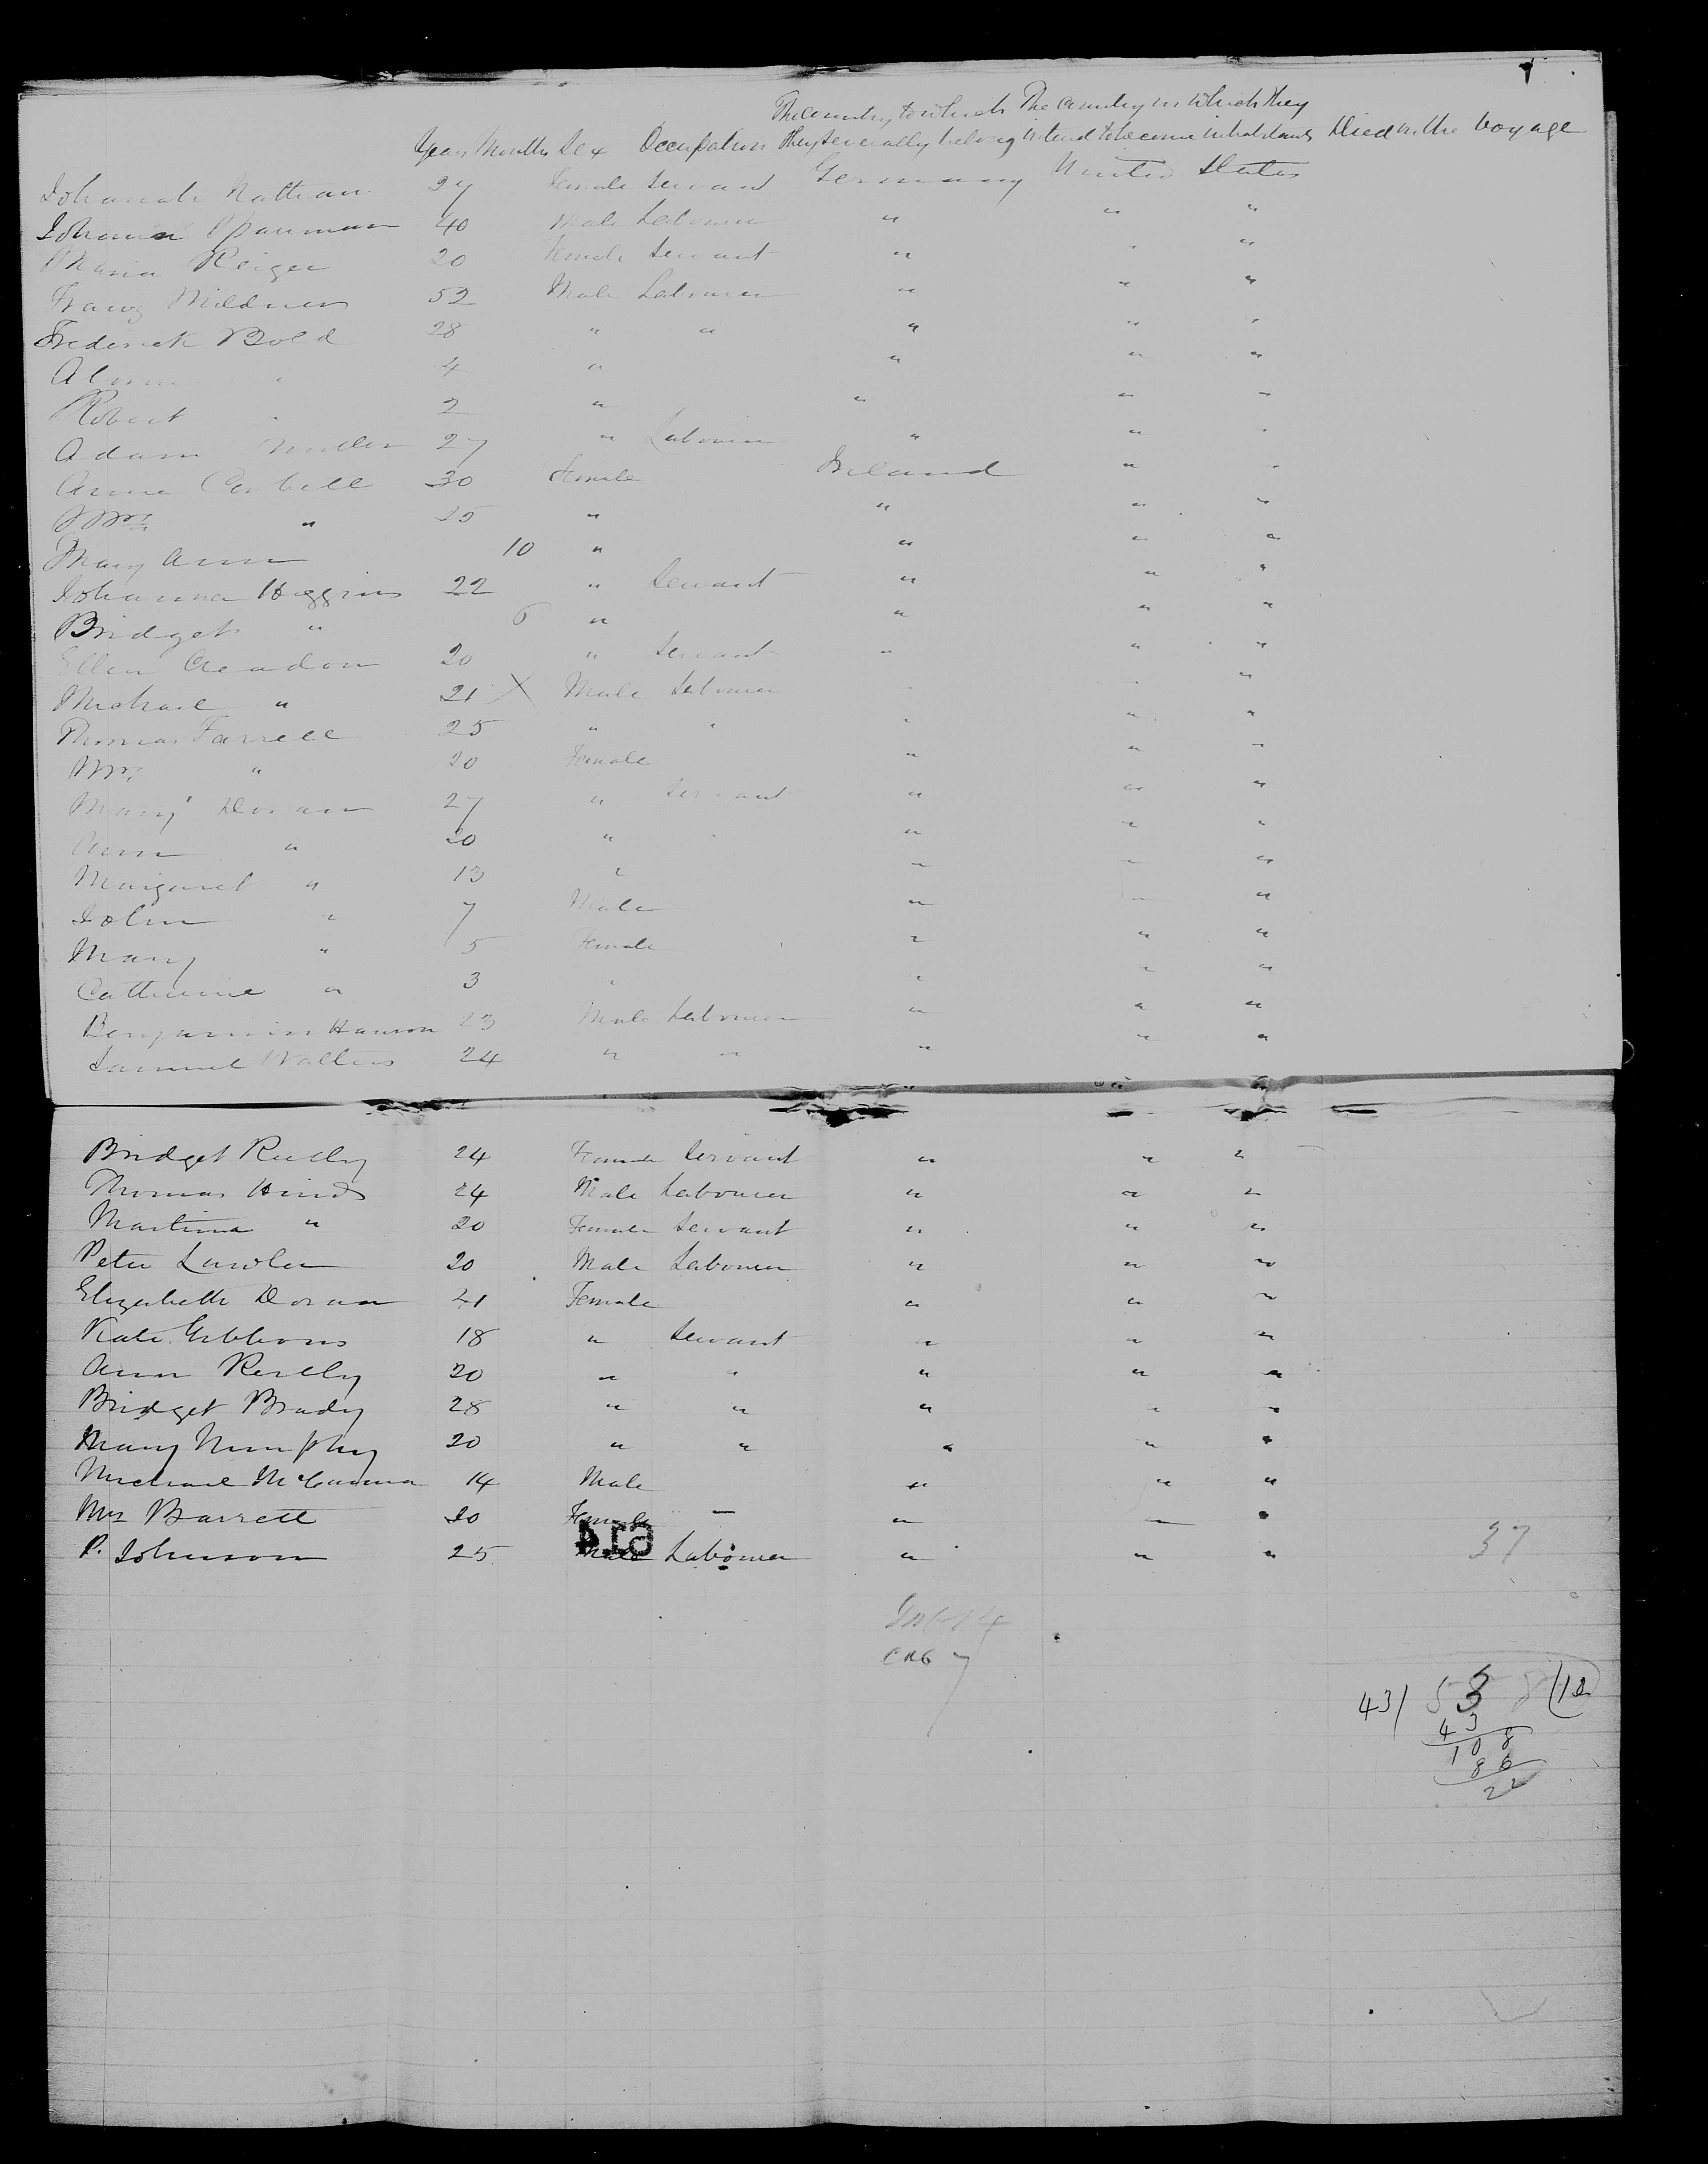 The Country to which The Country in which they
Years Months Sex Occupation they severally belong intend to become inhabitants Died on the Voyage
Johanah Nathan 27 Female Servant Germany United States
Johann 40 Male Labourer " " "
Maria Reiger 20 Female Servant " " "
Franz Mildner 52 Male Labourer " " "
Frederick Bold 28 " " " " "
4 " " " "
Robert 2 " " " "
Adam Muller 27 " Labourer " " "
Anne Corbell 30 Female Ireland " "
Mrs " 25 " " " "
Mary Ann 10 " " " "
Johanna Higgins 22 " Servant " " "
Bridget " 6 " " " "
Ellen Creadon 20 " Servant " " "
Michael " 21 X Male Labourer " " "
Thomas Farrell 25 " " " " "
Mrs " 20 Female " " "
Mary Doran 27 " Servant " " "
Ann " 20 " " " "
Margaret " 13 " " " "
John " 7 Male " " "
Mary " 5 Female " " "
Catherine " 3 " " " "
Benjamin Hanson 23 Male Labourer " " "
Samuel Walters 24 " " " " "
Bridget Reilly 24 Female Servant " " "
Thomas Hinds 24 Male Labourer " " "
Martina " 20 Female Servant " " "
Peter Lawler 20 Male Labourer " " "
Elizabeth Doran 41 Female " " "
Kate Gibbons 18 " Servant " " "
Ann Reilly 20 " " " " "
Bridget Brady 28 " " " " "
Mary Murphy 20 " " " " "
Michael 14 Male " " "
Mrs Barrett 20 Female " " "
P. Johnson 25 Male Labourer " " " 37
43/ 538 (12
43
108
86
22